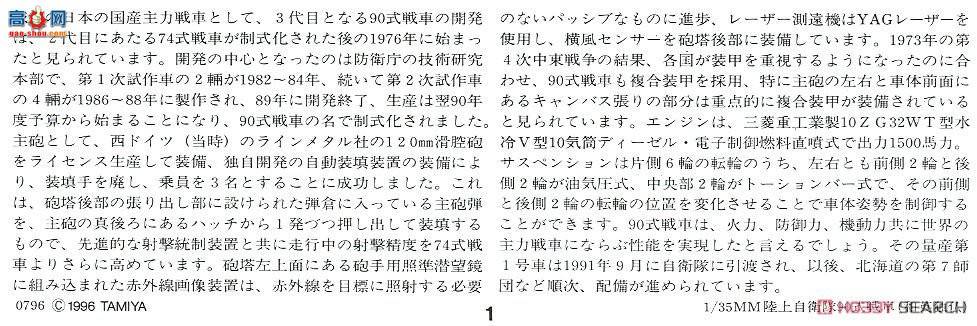 日本の国産主力戦車として、3代目となる90式戦車の開発
は、2代目にあたる74式戦車が制式化された後の1976年に始まっ
たと見られています。開発の中心となったのは防衛庁の技術研究
本部で、第1次試作車の2輛が1982〜84年、続いて第2次試作車
の4輛が1986〜88年に製作され、89年に開発終了、生産は翌90年
度予算から始まることになり、90式戦車の名で制式化されました。
主砲として、西ドイツ(当時)のラインメタル社の120mm滑腔砲
をライセンス生産して装備、独自開発の自動装填装置の装備によ
り、装填手を廃し、乗員を3名とすることに成功しました。これ
は、砲塔後部の張り出し部に設けられた弾倉に入っている主砲弾
を、主砲の真後ろにあるハッチから1発づつ押し出して装填する
もので、先進的な射撃統制装置と共に走行中の射撃精度を74式戦
車よりさらに高めています。砲塔左上面にある砲手用照準潜望鏡
に組み込まれた赤外線画像装置は、赤外線を目標に照射する必要
のないパッシブなものに進歩、レーザー測遠機はYAGレーザーを
使用し、横風センサーを砲塔後部に装備しています。1973年の第
4次中東戦争の結果、各国が装甲を重視するようになったのに合
わせ、90式戦車も複合装甲を採用、特に主砲の左右と車体前面に
あるキャンバス張りの部分は重点的に複合装甲が装備されている
と見られています。エンジンは、三菱重工業製10ZG32WT型水
冷V型10気筒ディーゼル・電子制御燃料直噴式で出力1500馬力。
サスペンションは片側6輪の転輪のうち、左右とも前側2輪と後
側2輪が油気圧式、中央部2輪がトーションバー式で、その前側
と後側2輪の転輪の位置を変化させることで車体姿勢を制御する
ことができます。90式戦車は、火力、防御力、機動力共に世界の
主力戦車にならぶ性能を実現したと言えるでしょう。その量産第
1号車は1991年9月に自衛隊に引渡され、以後、北海道の第7師
団など順次、配備が進められています。
0796 ©1996 TAMIYA
1
1/35MM陸上自衛隊90式戦車
HOBBY SEARCH
gao-shou.com